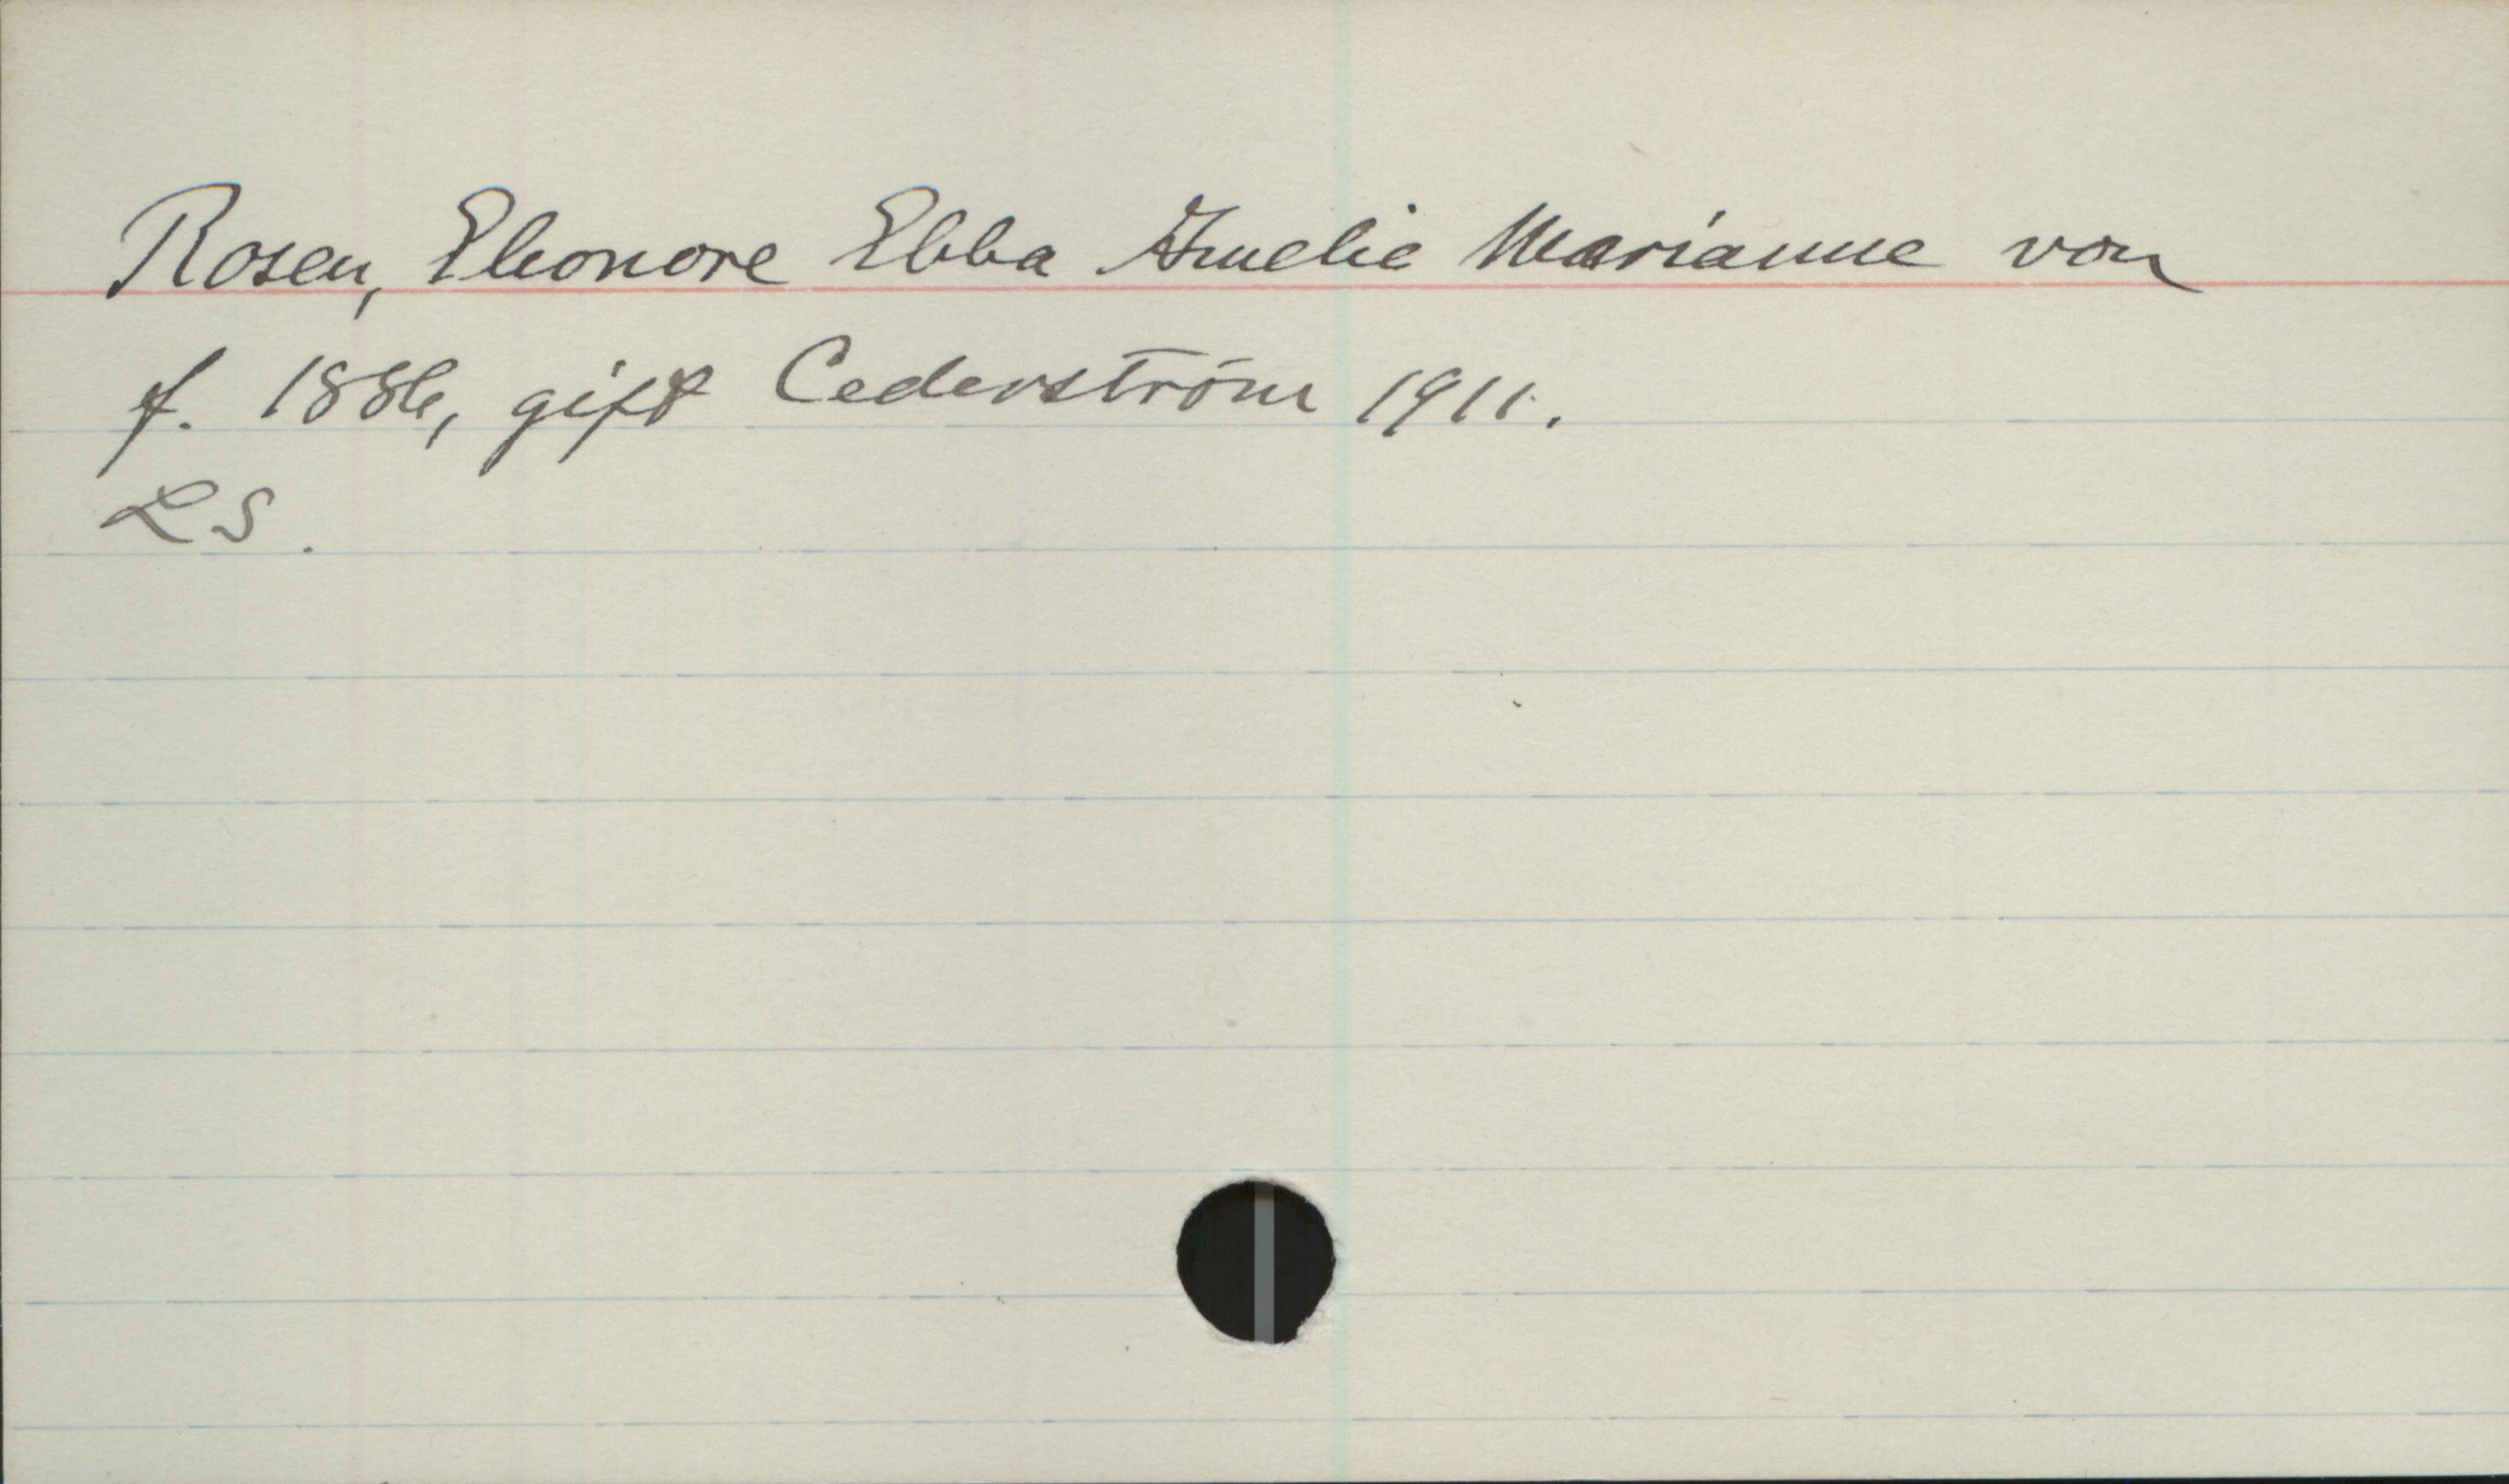 Rosen, Eleonore Ebba Amelie Marianne von
f. 1886, gift Cederström 1911.
LS.